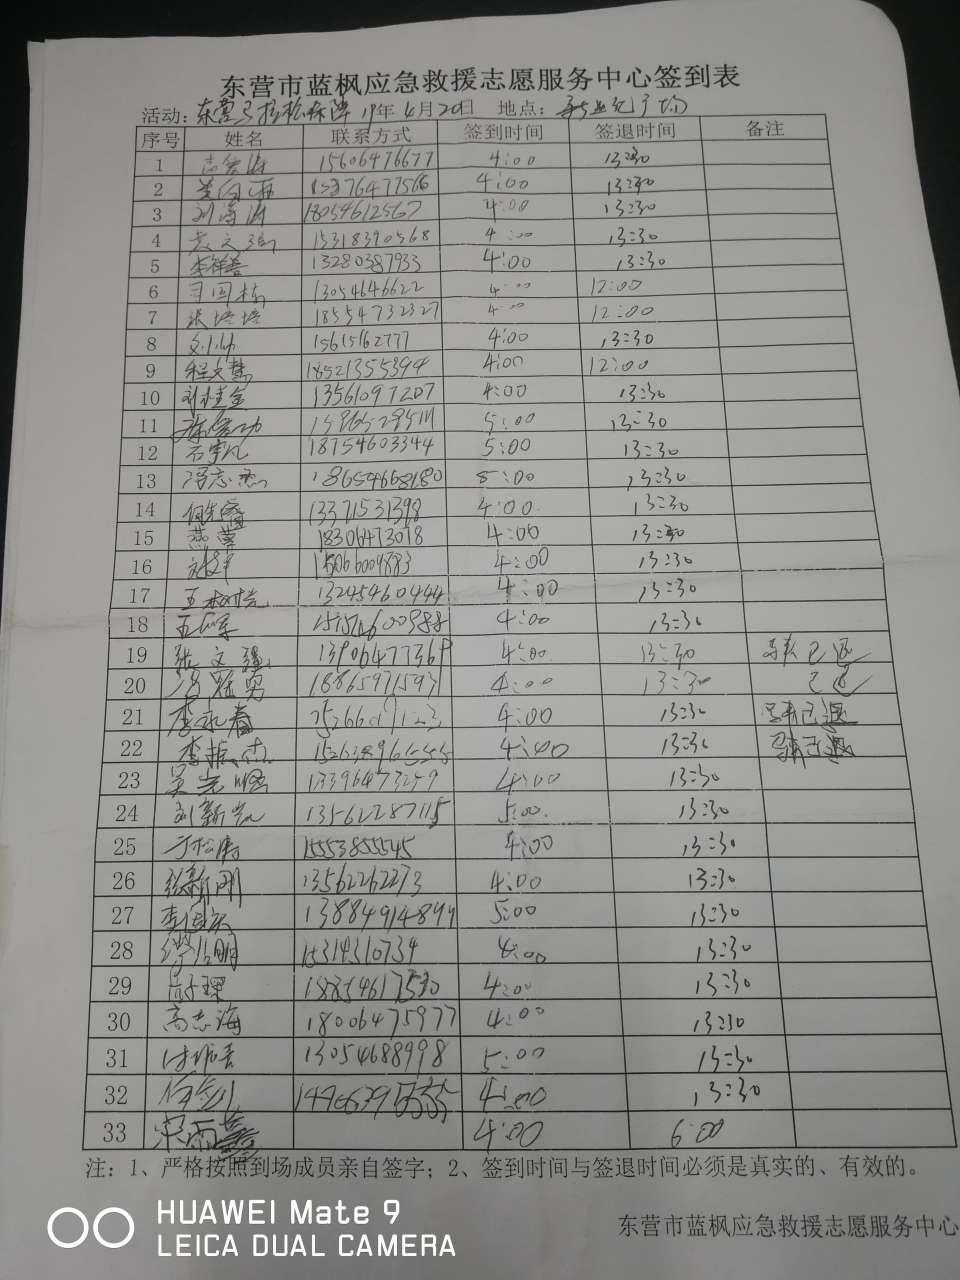 东营市蓝枫应急救援志愿服务中心签到表
活动：东营马拉松保障 19年4月20日 地点：
序号 姓名 联系方式 签到时间 签退时间 备注
1 15606476677 4:00 13:30
2 4:00 13:30
3 刘海涛 18054612567 4:00 13:30
4 15318390568 4:00 13:30
5 李祥善 13280387933 4:00 13:30
6 13054646622 4:00 12:00
7 张培培 18554732327 4:00 12:00
8 刘小帅 15615162777 4:00 13:30
9 程文慧 18521355394 4:00 12:00
10 刘桂金 13561097207 4:00 13:30
11 5:00 13:30
12 石宇凡 18754603344 5:00 13:30
13 冯志杰 18654668180 5:00 13:30
14 13371531398 4:00 13:30
15 燕霞 18306473078 4:00 13:30
16 15066004883 4:00 13:30
17 13245460444 4:00 13:30
18 4:00 13:30
19 张文强 13906477369 4:00 13:30 已退
20 冯冠男 18865971593 4:00 13:30 已退
21 李永春 4:00 13:30 已退
22 李振杰 4:00 13:30 已退
23 吴光明 13396473259 4:00 13:30
24 刘新凯 13562287115 5:00 13:30
25 于松涛 15553855545 4:00 13:30
26 张新刚 13562262273 4:00 13:30
27 13884914844 5:00 13:30
28 15314310734 4:00 13:30
29 18854617530 4:00 13:30
30 高志海 18006475977 4:00 13:30
31 13054688998 5:00 13:30
32 4:00 13:30
33 宋雨 4:00 6:00
注：1、严格按照到场成员亲自签字；2、签到时间与签退时间必须是真实的、有效的。
东营市蓝枫应急救援志愿服务中心
HUAWEI Mate 9
LEICA DUAL CAMERA